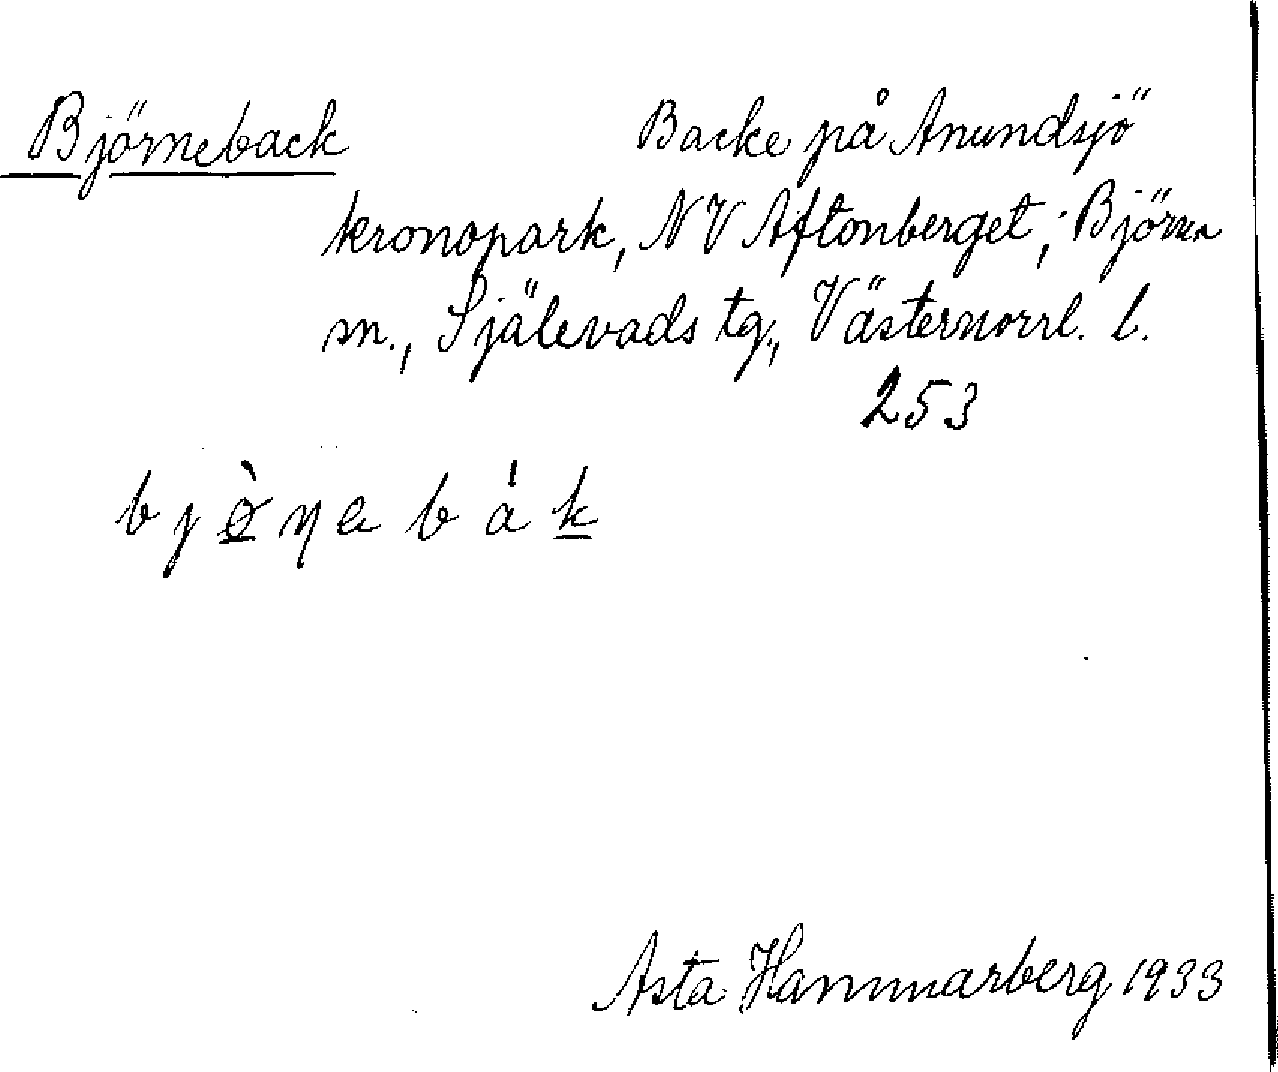 Björneback Backe på Anundsjö
kronopark, NV Aftonberget; Björna
sn., Själevads tg., Västernorrl. l.
253
bjø̀ɳebák
Asta Hammarberg 1933